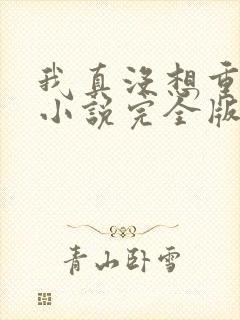 我真没想重
小説完全版
青山卧雪